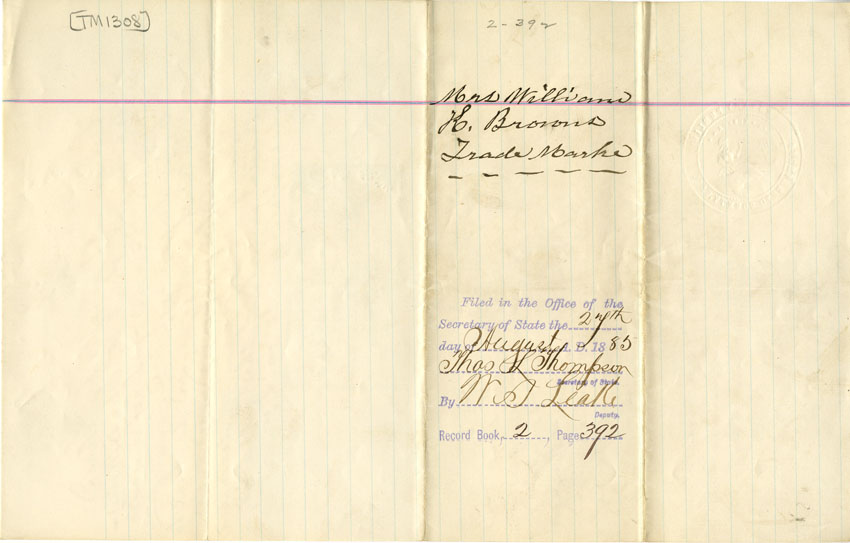 [TM1308]
2-392
Mrs William
H. Browns
Trade Marke
Filed in the Office of the
Secretary of State the 27th
day of August A. D. 1885
Thos L Thompson
Secretary of State.
By W S Leake
Deputy.
Record Book, 2, Page 392